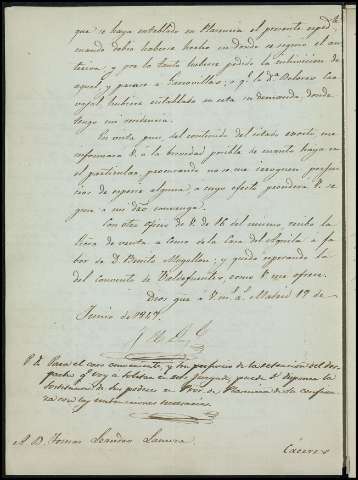 que se haya entablado en Plasencia el presente espedte
cuando debia haberse hecho en donde se siguió el an-
terior, y por lo tanto haberse pedido la inhivicion de
aquel, y pasarse a Garrovillas; o qe. la Da. Dolores Car-
vajal hubiera entablado en esta su demanda, donde
tengo mi residencia.
En vista pues, del contenido del citado escrito, me
informará V. á la brevedad posible de cuanto haya en
el particular, procurando no se me irroguen perjui-
cios de especie alguna, a cuyo efecto pondrá V. se-
gun a mi dro. convenga.
Con otro oficio de V. de 16 del mismo, recibo la
letra de venta a censo de la Casa del Aguila a fa-
bor de D. Benito Magallan; y quedo esperando la
del convento de Valdefuentes, como V. me ofrece.
Dios gue. a V. ms. as. Madrid 19 de
Junio de 1847.
P. D. Para el caso conveniente, y sin perjuicio de la retencion del des-
pacho qe. voy a solicitar en este Juzgado, puede V. disponer la
sostitucion de sus poderes en Pror. de Plasencia de la confian-
za con las instrucciones necesarias.
A D. Tomas Leandro
Cáceres